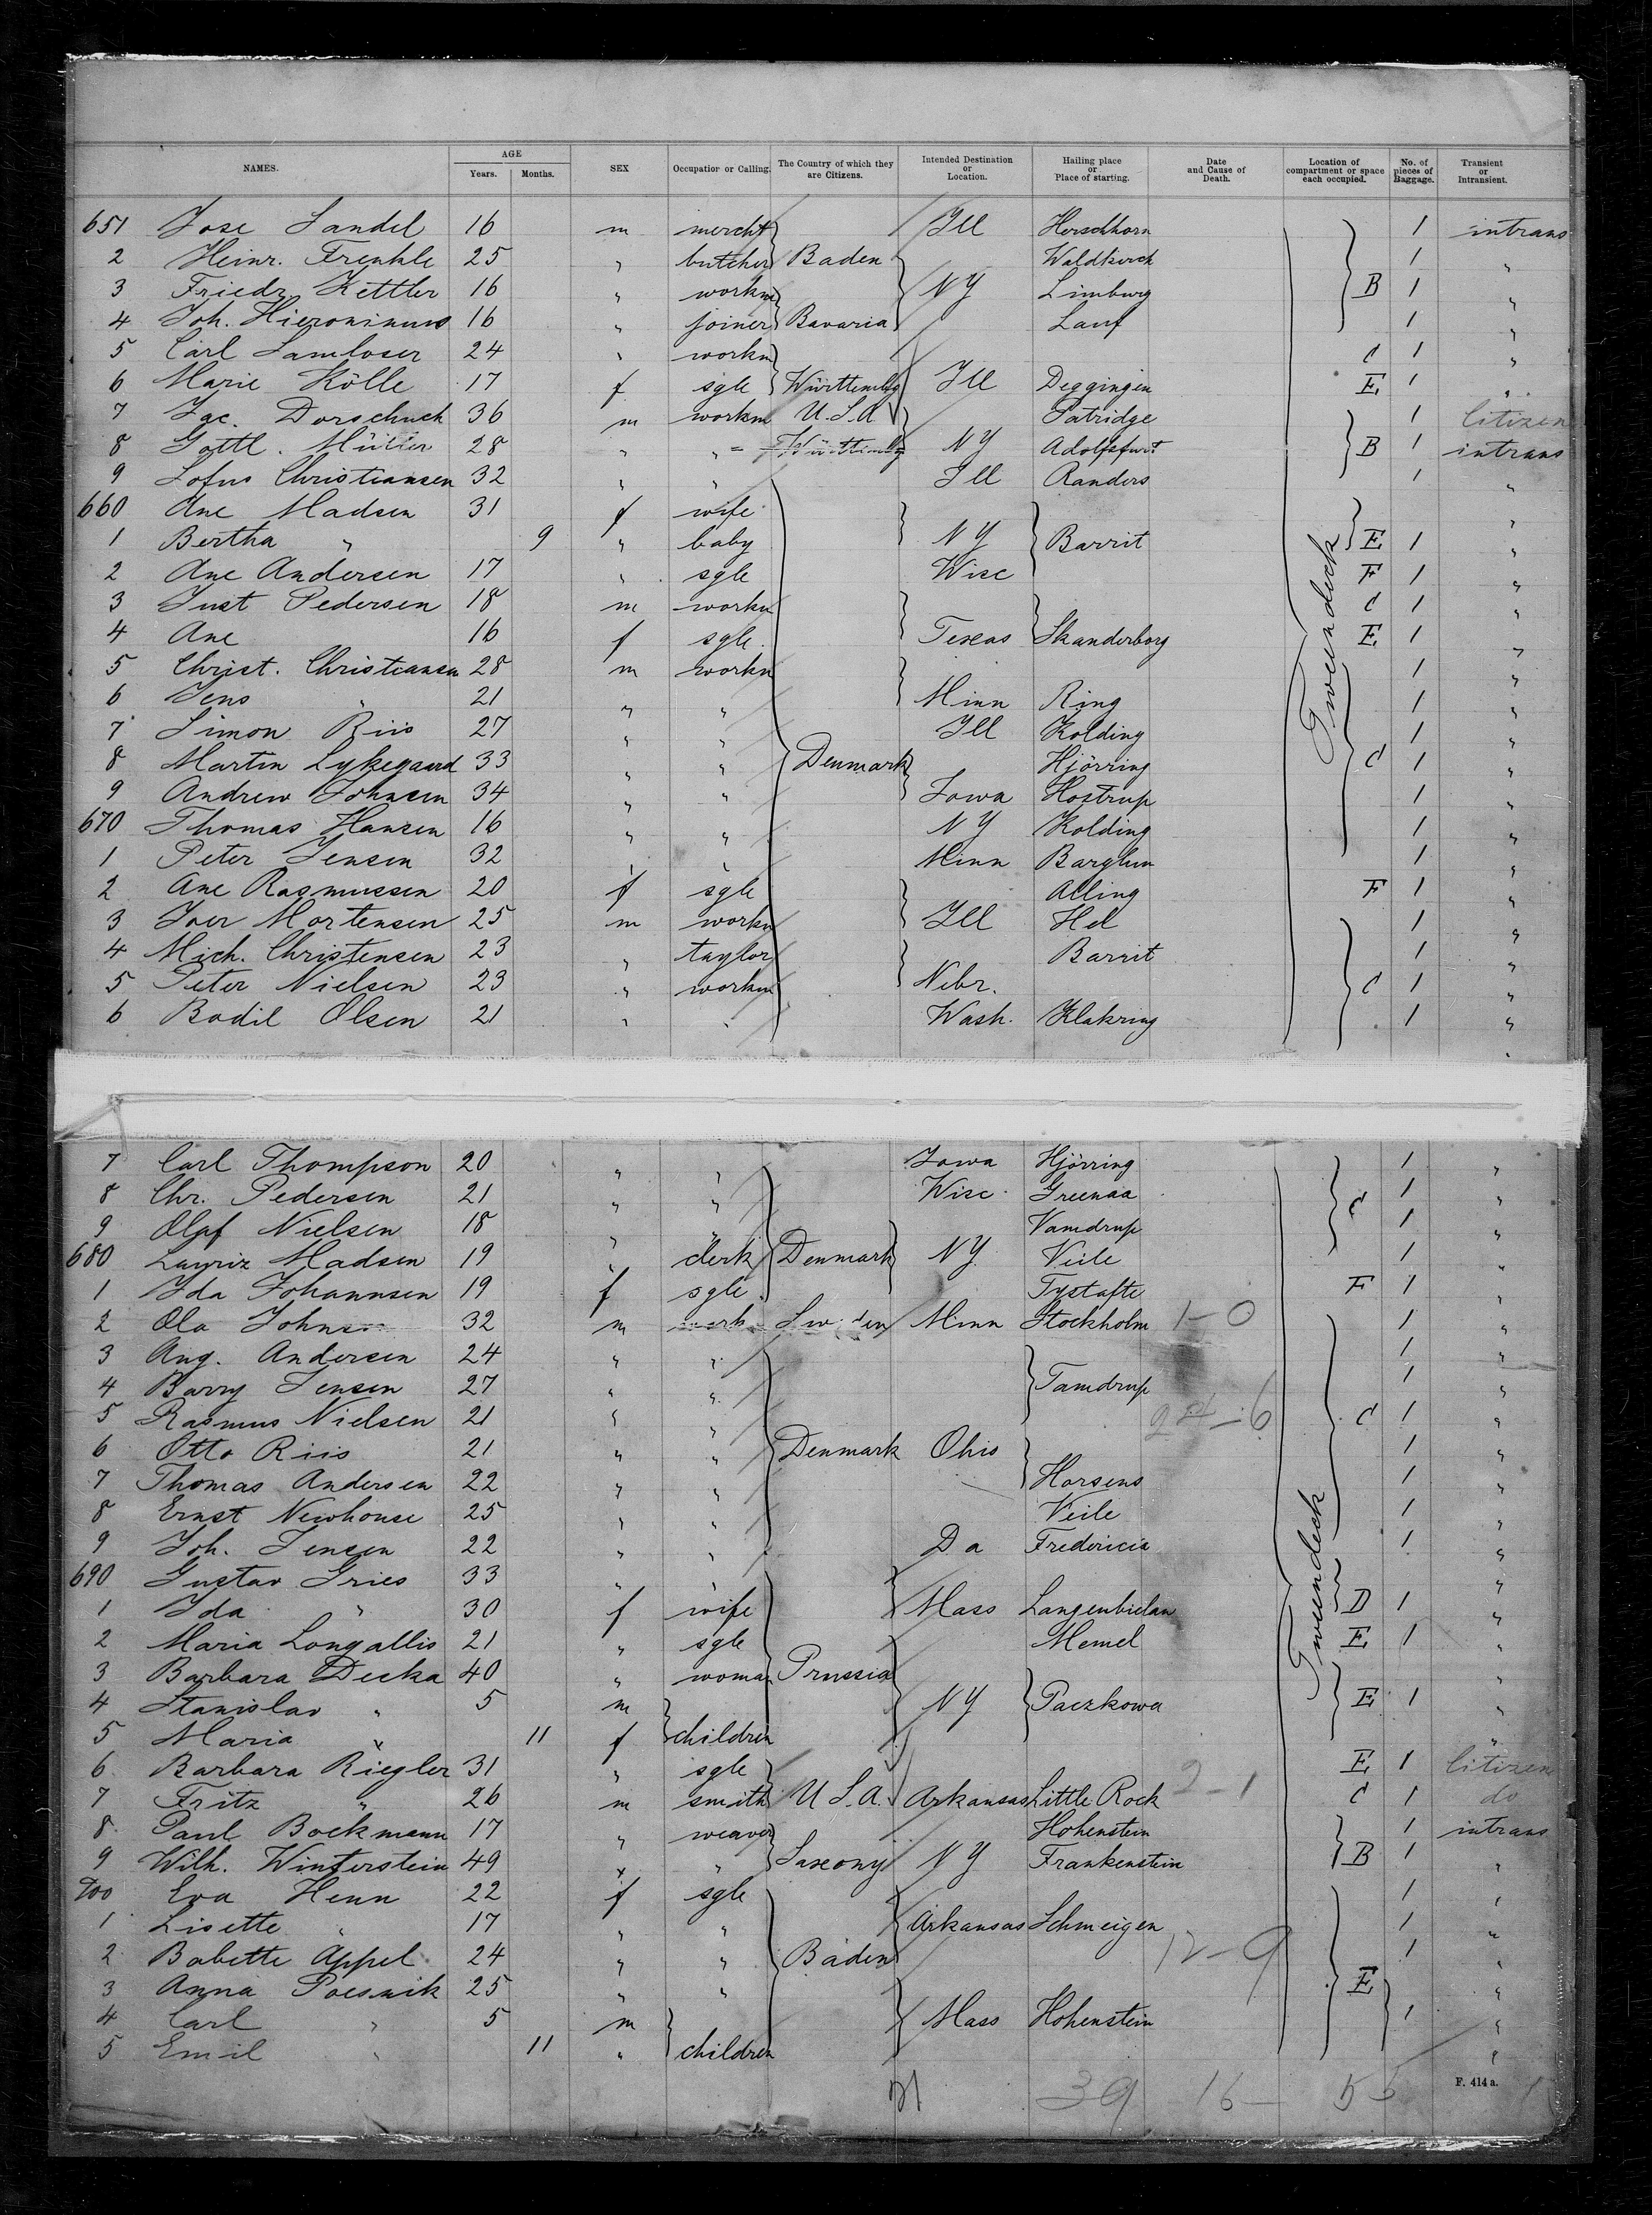 NAMES. AGE Years. Months. SEX Occupation or Calling. The Country of which they are Citizens. Intended Destination or Location. Hailing place or Place of starting. Date and Cause of Death. Location of compartment or space each occupied. No. of pieces of Baggage. Transient or Intransient.
651 Jose Landel 16 m mercht Ill Herschhorn 1 intrans
2 Heinr. Frenkle 25 " butcher Baden Waldkirch 1 "
3 Friedr Kettler 16 " workm NY Limburg B 1 "
4 Joh. Hieronimus 16 " joiner Bavaria Lauf 1 "
5 Carl Lamloser 24 " workm C 1 "
6 Marie Kölle 17 f sgle Württembg Ill Deggingen E 1 "
7 Jac. Dorschuck 36 m workm U.S.A Patridge 1 Citizen
8 Gottl. Müller 28 " " Württembg NY Adolfsfurt B 1 intrans
9 Sofus Christiansen 32 " " Ill Randers 1 "
660 Ane Madsen 31 f wife "
1 Bertha " 9 " baby NY Barrit E 1 "
2 Ane Andersen 17 " sgle Wisc F 1 "
3 Just Pedersen 18 m workm C 1 "
4 Ane 16 f sgle Texas Skanderborg E 1 "
5 Christ. Christiansen 28 m workm 1 "
6 Jens " 21 " " Minn Ring 1 "
7 Simon Riis 27 " " Ill Kolding 1 "
8 Martin Lykegaard 33 " " Denmark Hjörring C 1 "
9 Andrew Johnsen 34 " " Iowa Hostrup 1 "
670 Thomas Hansen 16 " " NY Kolding 1 "
1 Peter Jensen 32 " " Minn Barglum 1 "
2 Ane Rasmussen 20 f sgle Alling F 1 "
3 Iver Mortensen 25 m workm Ill Hel 1 "
4 Mich. Christensen 23 " taylor Barrit 1 "
5 Peter Nielsen 23 " workm Nebr. C 1 "
6 Bodil Olsen 21 " " Wash. Klakring 1 "
Tweendeck
7 Carl Thompson 20 " " Iowa Hjörring 1 "
8 Chr. Pedersen 21 " " Wisc. Greenaa C 1 "
9 Olaf Nielsen 18 " " Vamdrup 1 "
680 Lauriz Madsen 19 " clerk Denmark NY. Veile 1 "
1 Ida Johannsen 19 f sgle Tystafte F 1 "
2 Ola Johnsen 32 m work Sweden Minn Stockholm 1-0 1 "
3 Aug. Andersen 24 " " 1 "
4 Barry Jensen 27 " " Tamdrup 1 "
5 Rasmus Nielsen 21 " " 24-6 C 1 "
6 Otto Riis 21 " " Denmark Ohio 1 "
7 Thomas Andersen 22 " " Horsens 1 "
8 Ernst Newhouse 25 " " Veile 1 "
9 Joh. Jensen 22 " " Da Fredericia 1 "
690 Gustav Gries 33 " " "
1 Ida " 30 f wife Mass Langenbielau D 1 "
2 Maria Longallis 21 " sgle Memel E 1 "
3 Barbara Decka 40 " woman Prussia "
4 Stanislav " 5 m NY Paczkowa E 1 "
5 Maria " 11 f children "
6 Barbara Riegler 31 " sgle E 1 Citizen
7 Fritz " 26 m smith U.S.A. Arkansas Little Rock 2-1 C 1 do
8 Paul Bockmann 17 " weaver Hohenstein 1 intrans
9 Wilh. Winterstein 49 " " Saxony NY Frankenstein B 1 "
700 Eva Henn 22 f sgle 1 "
1 Lisette " 17 " " Arkansas Schmeigen 1 "
2 Babette Appel 24 " " Baden 12-9 1 "
3 Anna Poesnik 25 " " E "
4 Carl " 5 m Mass Hohenstein 1 "
5 Emil " 11 " children "
Tweendeck
39 16- 55
F. 414 a.